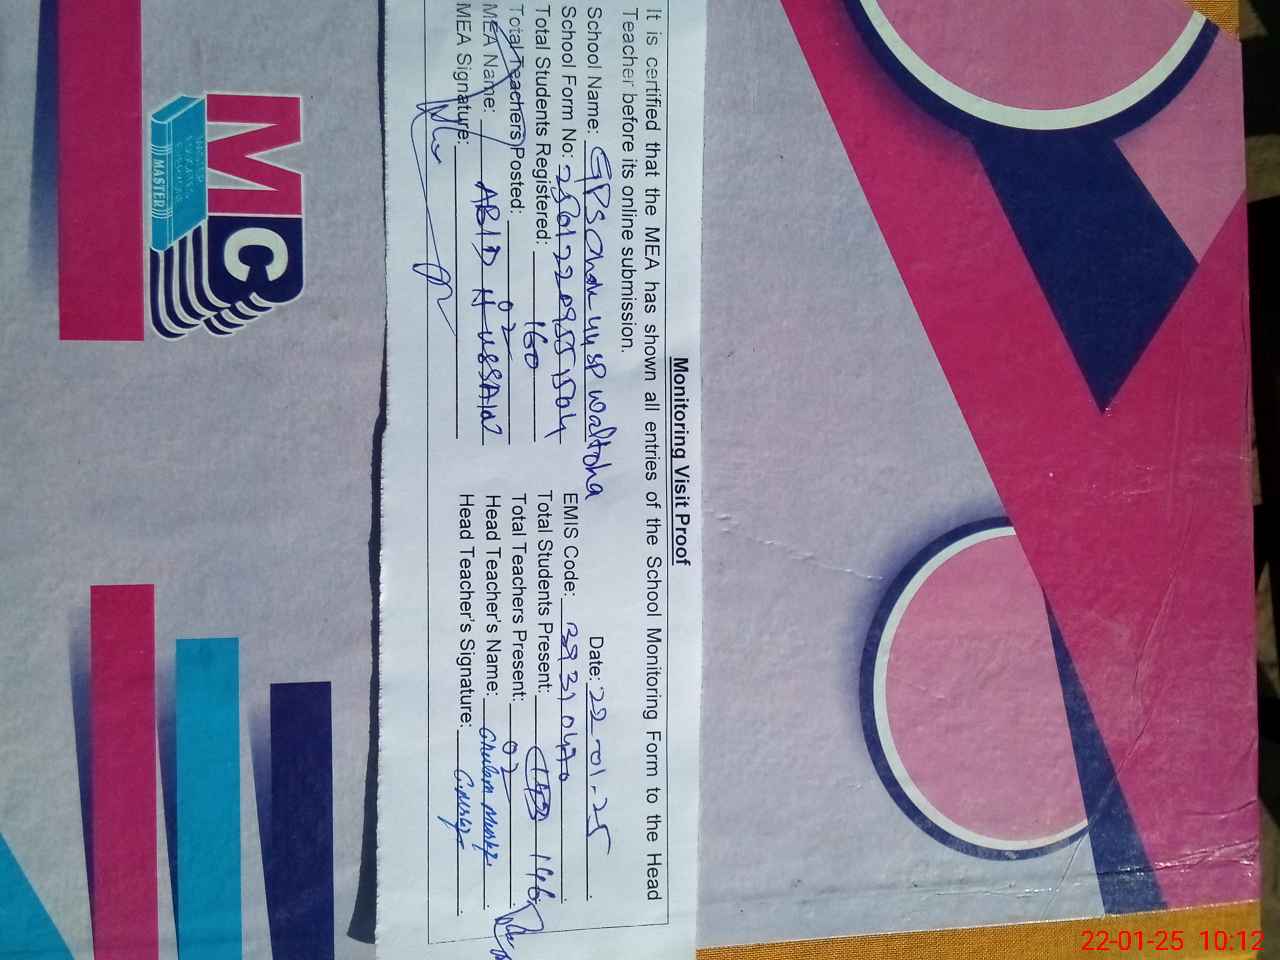 Monitoring Visit Proof
It is certified that the MEA has shown all entries of the School Monitoring Form to the Head
Teacher before its online submission.
School Name: GPS Chak 44 SP Waltoha Date: 22-01-25
School Form No: EMIS Code: 39310470
Total Students Registered: 160 Total Students Present: 146
Total Teachers Posted: 02 Total Teachers Present: 02
MEA Name: ABID HUSSAIN Head Teacher's Name: Ghulam
MEA Signature: Head Teacher's Signature:
MC
MASTER
22-01-25 10:12